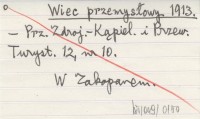 Wiec przemysłowy 1913.
– Prz. Zdroj.-Kąpiel. i Przew.
Turyst. 12, nr 10.
W Zakopanem.